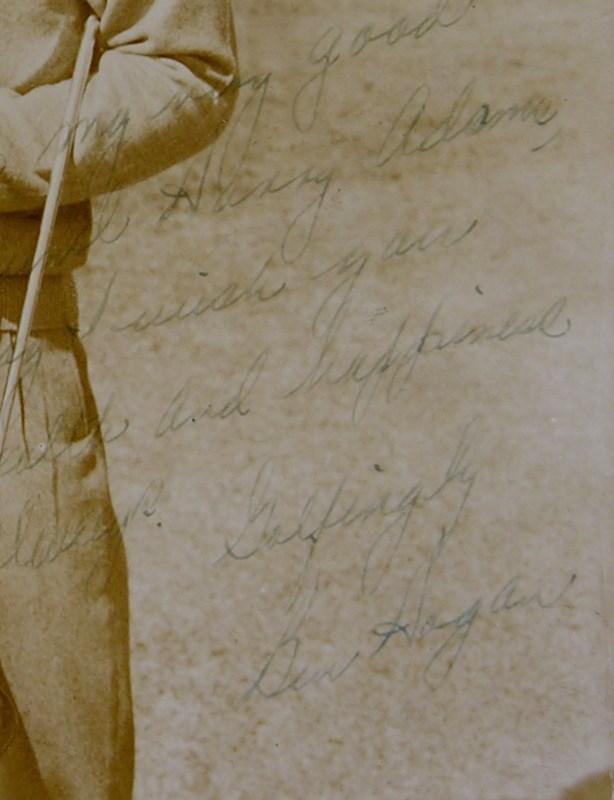 my very good
Harry Adams,
I wish you
and happiness
Golfingly
Ben Hogan